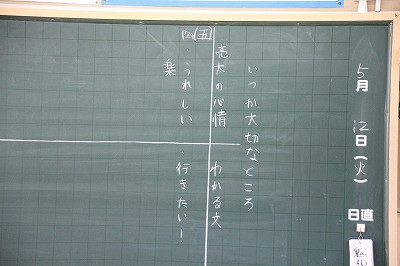 5月12日(火)
日直
いつか大切なところ
亮太の心情 わかる文
P24(五)
・うれしい ・行きたい!
楽